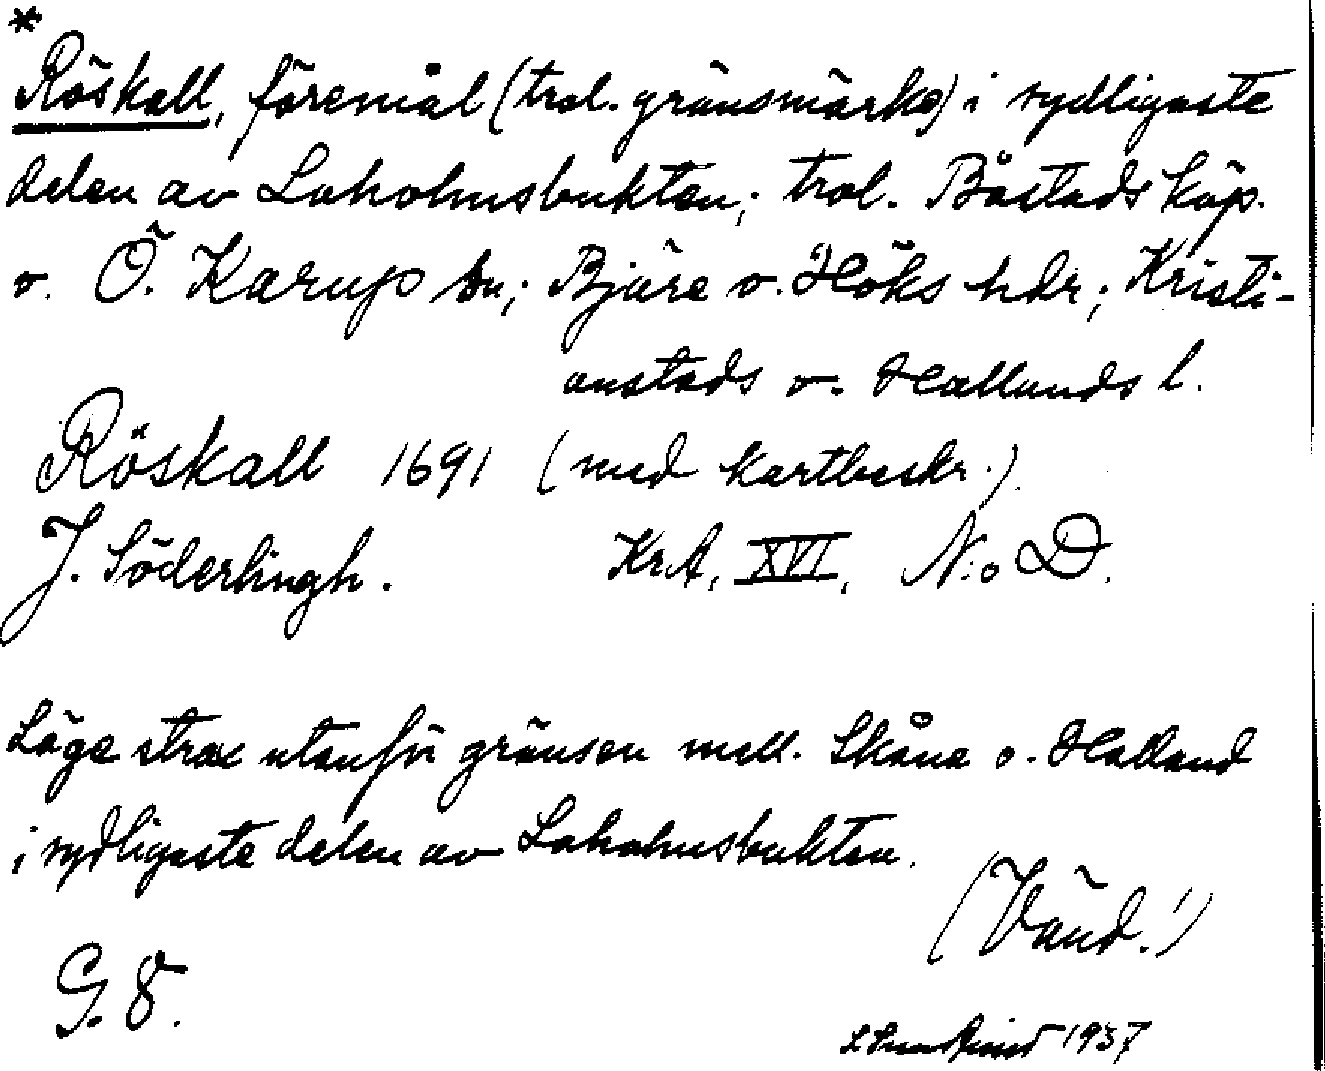 *
Röskall, föremål (trol. gränsmärke) i sydligaste
delen av Laholmsbukten; trol. Båstads köp.
o. Ö. Karup sn; Bjäre o. Höks hdr; Kristi-
anstads o. Hallands l.
Röskall 1691 (med kartbeskr.).
J. Söderlingh. KrA, XVI, N:o D.
Läge strax utanför gränsen mell. Skåne o. Halland
i sydligaste delen av Laholmsbukten.
(Vänd!)
G. 8.
1937